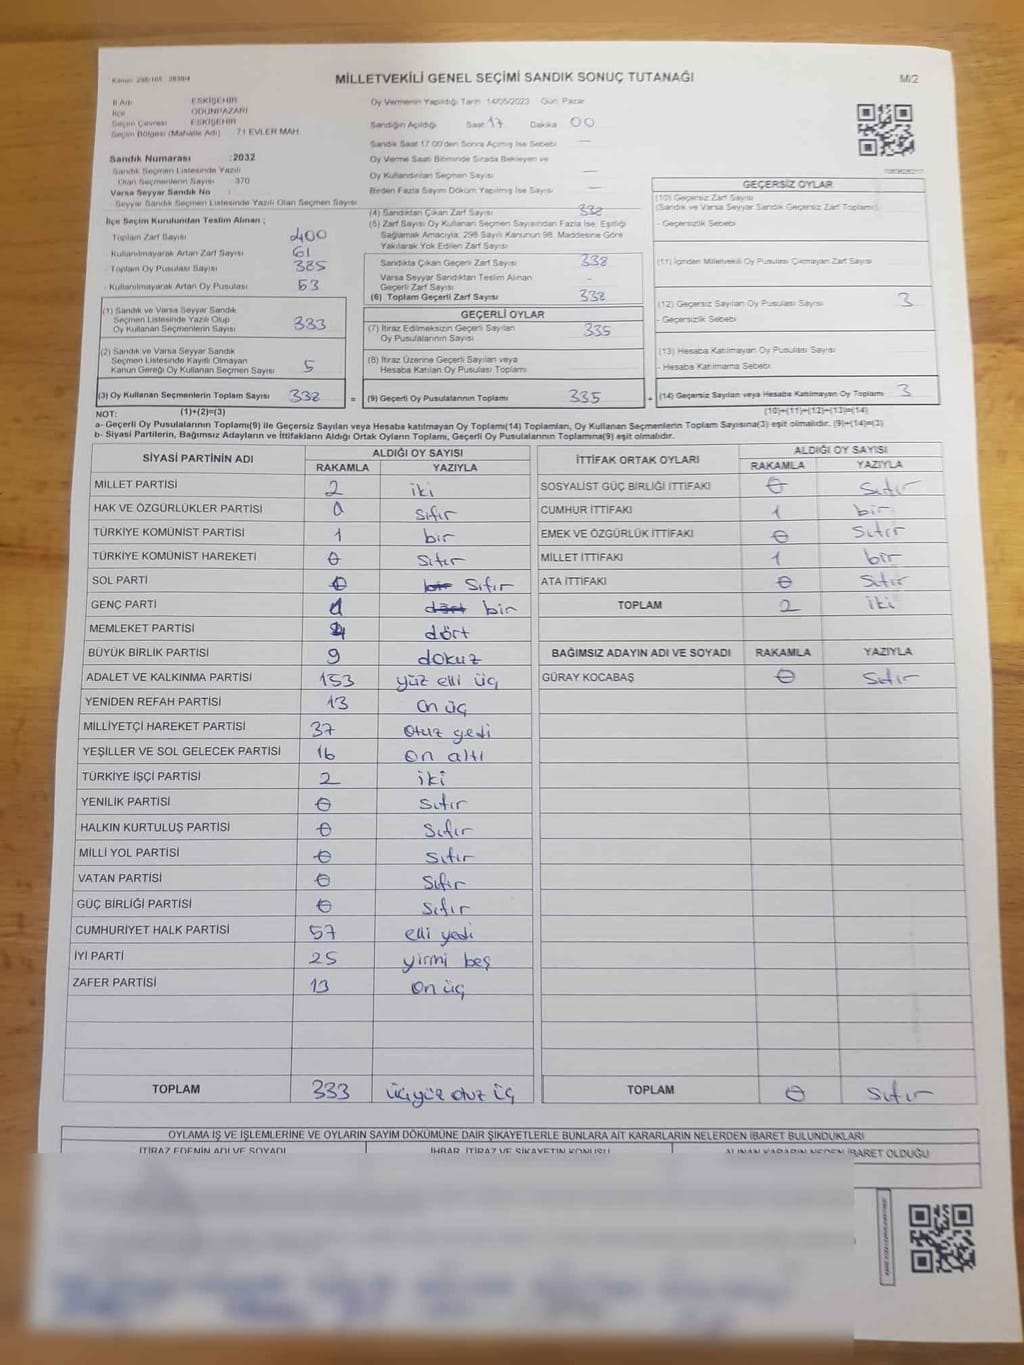 Kanun: 298/105 2839/4
MİLLETVEKİLİ GENEL SEÇİMİ SANDIK SONUÇ TUTANAĞI
M/2
İl Adı ESKİŞEHİR
İlçe ODUNPAZARI
Seçim Çevresi ESKİŞEHİR
Seçim Bölgesi (Mahalle Adı) 71 EVLER MAH.
Sandık Numarası :2032
Sandık Seçmen Listesinde Yazılı
Olan Seçmenlerin Sayısı 370
Varsa Seyyar Sandık No :
Seyyar Sandık Seçmen Listesinde Yazılı Olan Seçmen Sayısı
Oy Vermenin Yapıldığı Tarih 14/05/2023 Gün: Pazar
Sandığın Açıldığı Saat 17 Dakika 00
Sandık Saat 17:00'den Sonra Açılmış İse Sebebi —
Oy Verme Saati Bitiminde Sırada Bekleyen ve
Oy Kullandırılan Seçmen Sayısı —
Birden Fazla Sayım Döküm Yapılmış İse Sayısı —
İlçe Seçim Kurulundan Teslim Alınan ;
Toplam Zarf Sayısı 400
- Kullanılmayarak Artan Zarf Sayısı 61
- Toplam Oy Pusulası Sayısı 385
- Kullanılmayarak Artan Oy Pusulası 53
(1) Sandık ve Varsa Seyyar Sandık
Seçmen Listesinde Yazılı Olup
Oy Kullanan Seçmenlerin Sayısı 333
(2) Sandık ve Varsa Seyyar Sandık
Seçmen Listesinde Kayıtlı Olmayan
Kanun Gereği Oy Kullanan Seçmen Sayısı 5
(3) Oy Kullanan Seçmenlerin Toplam Sayısı 338 =
(1)+(2)=(3)
(4) Sandıktan Çıkan Zarf Sayısı 338
(5) Zarf Sayısı Oy Kullanan Seçmen Sayısından Fazla İse, Eşitliği
Sağlamak Amacıyla, 298 Sayılı Kanunun 98. Maddesine Göre
Yakılarak Yok Edilen Zarf Sayısı
Sandıkta Çıkan Geçerli Zarf Sayısı 338
Varsa Seyyar Sandıktan Teslim Alınan
Geçerli Zarf Sayısı -
(6) Toplam Geçerli Zarf Sayısı 338
GEÇERLİ OYLAR
(7) İtiraz Edilmeksizin Geçerli Sayılan
Oy Pusulalarının Sayısı 335
(8) İtiraz Üzerine Geçerli Sayılan veya
Hesaba Katılan Oy Pusulası Toplamı
(9) Geçerli Oy Pusulalarının Toplamı 335 +
GEÇERSİZ OYLAR
(10) Geçersiz Zarf Sayısı
(Sandık ve Varsa Seyyar Sandık Geçersiz Zarf Toplamı)
- Geçersizlik Sebebi
(11) İçinden Milletvekili Oy Pusulası Çıkmayan Zarf Sayısı
(12) Geçersiz Sayılan Oy Pusulası Sayısı 3
- Geçersizlik Sebebi
(13) Hesaba Katılmayan Oy Pusulası Sayısı
- Hesaba Katılmama Sebebi
(14) Geçersiz Sayılan veya Hesaba Katılmayan Oy Toplamı 3
(10)+(11)+(12)+(13)=(14)
NOT:
a- Geçerli Oy Pusulalarının Toplamı(9) ile Geçersiz Sayılan veya Hesaba Katılmayan Oy Toplamı(14) Toplamları, Oy Kullanan Seçmenlerin Toplam Sayısına(3) eşit olmalıdır. (9)+(14)=(3)
b- Siyasi Partilerin, Bağımsız Adayların ve İttifakların Aldığı Ortak Oyların Toplamı, Geçerli Oy Pusulalarının Toplamına(9) eşit olmalıdır.
SİYASİ PARTİNİN ADI ALDIĞI OY SAYISI
RAKAMLA YAZIYLA
MİLLET PARTİSİ 2 iki
HAK VE ÖZGÜRLÜKLER PARTİSİ 0 sıfır
TÜRKİYE KOMÜNİST PARTİSİ 1 bir
TÜRKİYE KOMÜNİST HAREKETİ 0 sıfır
SOL PARTİ 0 bir sıfır
GENÇ PARTİ 1 dört bir
MEMLEKET PARTİSİ 4 dört
BÜYÜK BİRLİK PARTİSİ 9 dokuz
ADALET VE KALKINMA PARTİSİ 153 yüz elli üç
YENİDEN REFAH PARTİSİ 13 on üç
MİLLİYETÇİ HAREKET PARTİSİ 37 otuz yedi
YEŞİLLER VE SOL GELECEK PARTİSİ 16 on altı
TÜRKİYE İŞÇİ PARTİSİ 2 iki
YENİLİK PARTİSİ 0 sıfır
HALKIN KURTULUŞ PARTİSİ 0 sıfır
MİLLİ YOL PARTİSİ 0 sıfır
VATAN PARTİSİ 0 sıfır
GÜÇ BİRLİĞİ PARTİSİ 0 sıfır
CUMHURİYET HALK PARTİSİ 57 elli yedi
İYİ PARTİ 25 yirmi beş
ZAFER PARTİSİ 13 on üç
TOPLAM 333 üçyüz otuz üç
İTTİFAK ORTAK OYLARI ALDIĞI OY SAYISI
RAKAMLA YAZIYLA
SOSYALİST GÜÇ BİRLİĞİ İTTİFAKI 0 sıfır
CUMHUR İTTİFAKI 1 bir
EMEK VE ÖZGÜRLÜK İTTİFAKI 0 sıfır
MİLLET İTTİFAKI 1 bir
ATA İTTİFAKI 0 sıfır
TOPLAM 2 iki
BAĞIMSIZ ADAYIN ADI VE SOYADI RAKAMLA YAZIYLA
GÜRAY KOCABAŞ 0 sıfır
TOPLAM 0 sıfır
OYLAMA İŞ VE İŞLEMLERİNE VE OYLARIN SAYIM DÖKÜMÜNE DAİR ŞİKAYETLERLE BUNLARA AİT KARARLARIN NELERDEN İBARET BULUNDUKLARI
İTİRAZ EDENİN ADI VE SOYADI İHBAR, İTİRAZ VE ŞİKAYETİN KONUSU ALINAN KARARIN NEDEN İBARET OLDUĞU